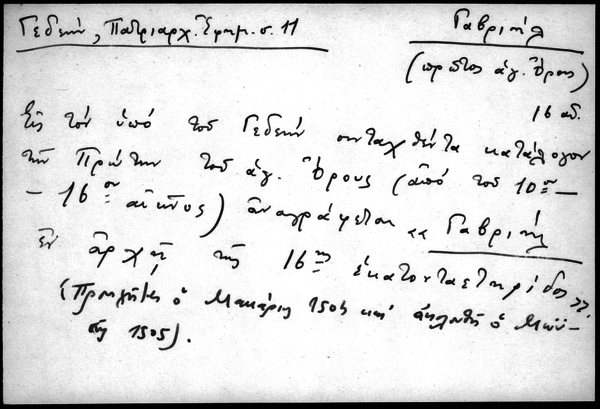 Γεδεών, Πατριαρχ. Ἐφημ. σ. 11
Γαβριήλ
(πρῶτος ἁγ. Ὄρους)
16 αἰ.
Εἰς τόν ὑπό τοῦ Γεδεών συνταχθέντα κατάλογον
τῶν Πρώτων τοῦ ἁγ. Ὄρους (ἀπό τοῦ 10ου –
– 16ου αἰῶνος) ἀναγράφεται «Γαβριήλ
ἐν ἀρχῇ τῆς 16ης ἑκατονταετηρίδος»
(Προηγεῖται ὁ Μακάριος 1503 καί ἀκολουθεῖ ὁ Μωϋ-
σῆς 1505).